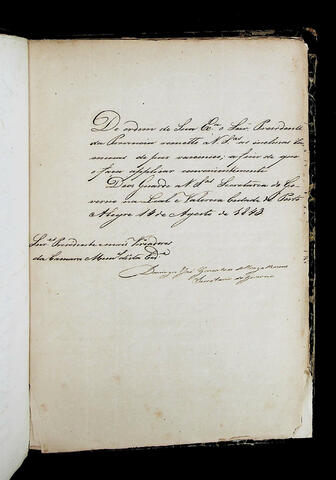 De ordem de Sua Exª o Snr. Presidente
da Provincia remetto a V. Sªs as inclusas
de puz vaccinico, a fim de que
o faça applicar convenientemente
Deos Guarde a V. Sªs Secretaria do Go-
verno na Leal e Valorosa Cidade de Porto
Alegre 14 de Agosto de 1843
Snres Presidente e mais Vereadores
da Camara Munal desta Cide
Domingos José Gonçalves de Magalhaens
Secretario do Governo